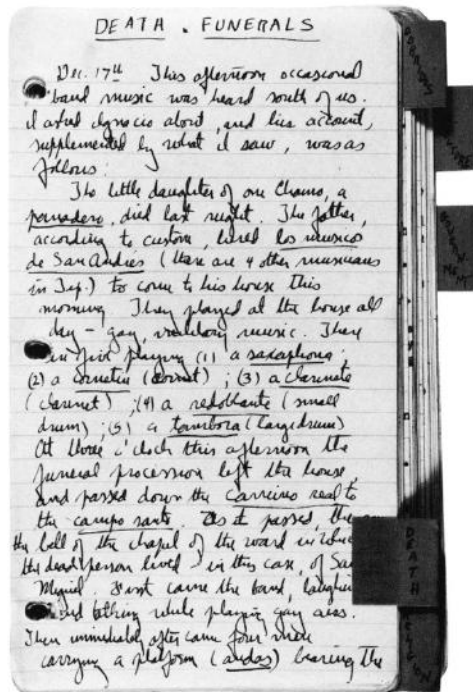 DEATH . FUNERALS
Dec. 17th This afternoon occasional
band music was heard south of us.
I asked Ignacio about, and his account,
supplemented by what I saw, was as
follows:
The little daughter of one Chamo, a
panadero, died last night. The father,
according to custom, hired los musicos
de San Andres (there are 4 other musicians
in Tep.) to come to his house this
morning They played at the house all
day - gay, music. There
five playing (1) a saxaphone;
(2) a cornetin (cornet); (3) a clarinete
(clarinet); (4) a redoblante (small
drum); (5) a tambora (large drum)
At three o'clock this afternoon the
funeral procession left the house
and passed down the carreino real to
the campo santo. As it passed, they
the bell of the chapel of the ward in which
the dead person lived - in this case, of San
Miguel. First came the band, laughing
and talking while playing gay airs.
Then immediately after came four men
carrying a platform (andas) bearing the
DEATH